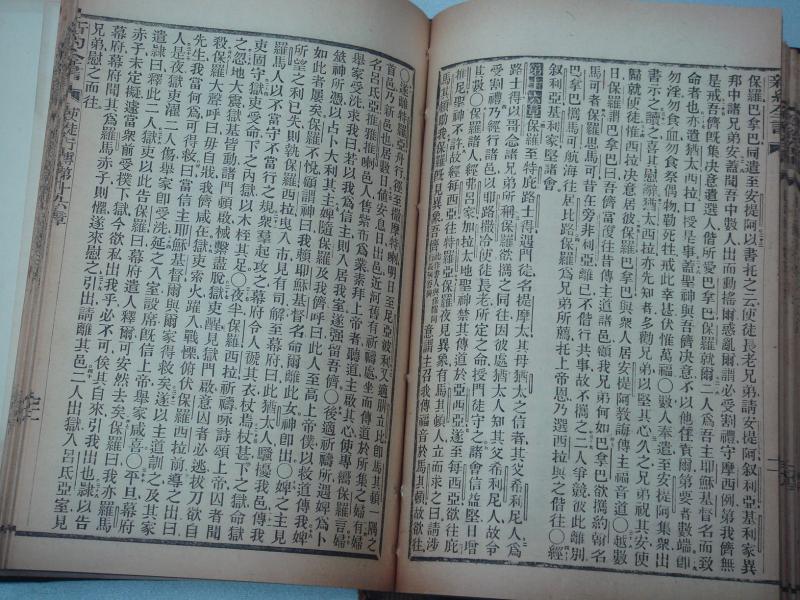 新約全書
保羅巴拿巴同遣至安提阿以書托之云使徒長老兄弟請安提阿敘利亞基利家異
邦中諸兄弟安蓋聞吾中數人出而動搖爾惑亂爾謂必受割禮守摩西例第我儕無
是戒吾儕既集決意遣選人偕所愛巴拿巴保羅就爾二人爲吾主耶穌基督名而致
命者也亦遣猶大西拉口授是事蓋聖神與吾儕決意不以他任責爾第要者數端卽
勿淫勿食血勿食祭偶物勒死牲戒此幸甚伏惟萬福〇數人奉遣至安提阿集衆出
書示之讀之喜其慰藉猶大西拉亦先知者多勸兄弟以堅其心久之兄弟祝其安使
歸就使徒惟西拉決意居彼保羅巴拿巴與衆人居安提阿教誨傳主福音道〇越數
日保羅謂巴拿巴曰吾儕當度往昔傳主道諸邑顧我兄弟何如巴拿巴欲攜約翰名
馬可者保羅思馬可昔在旁非利亞離己不偕行共事故不攜之二人爭競彼此離別
巴拿巴攜馬可航海往居比路保羅爲兄弟所薦托上帝恩乃選西拉與之偕往〇經
敘利亞基利家堅諸會
第十六章保羅至特庇路士得遇門徒名提摩太其母猶太之信者其父希利尼人爲
路士得以哥念諸兄弟所稱保羅欲攜之同往因彼處猶太人知其父希利尼人故令
受割禮乃經行諸邑以耶路撒冷使徒長老所定之命授門徒守之諸會信益堅日增
其數〇保羅諸人經弗呂家加拉太地聖神禁其傳道於亞西亞遂至每西亞欲往庇
推尼聖神不許故經每西亞往特羅亞保羅夜見異象有馬其頓人立而求之曰請涉
馬其頓助我保羅旣見異象吾儕意謂主召我傳福音於馬其頓故欲往
〇遂離特羅亞舟行徑至撒摩特喇明日至尼亞波利又適腓立比卽馬其頓一隅之
首邑乃新邑也居數日値安息日出邑近河舊有祈禱處坐而傳道於所集之婦有婦
名呂氐亞推雅推喇邑人售紫布爲業素拜上帝者聽道主啟其心使專聽保羅言婦
舉家受洗求我曰若以我爲信主則入居我室遂强留吾儕〇後適祈禱所遇婢爲卜
筮神所憑以占卜大利其主婢隨保羅及我儕呼曰此人至高上帝僕以救道傳我婢
如此者屢矣保羅不悅顧謂神曰我賴耶穌基督名命爾離此女神卽出〇婢之主見
所望之利已失則執保羅西拉曳入市見有司解至幕府曰此猶太人騷擾我邑傳我
羅馬人所不宜受不宜行之規衆羣起攻之幕府令人褫其衣杖之旣重杖下之獄命獄
吏固守獄吏受命下之內獄以木桎其足〇夜半保羅西拉祈禱咏詩頌上帝囚者聞
之忽地大震獄基皆動諸門頓啟械繫盡脱獄吏醒見獄門啟意囚者必逃拔刀欲自
殺保羅大聲呼曰毋自戕我儕咸在獄吏索火躍入戰慄俯伏保羅西拉前導之出曰
先生我當何爲可得救曰當信主耶穌基督爾與爾家得救矣遂以主道訓之及其家
人是夜獄吏濯二人傷舉家卽受洗延之入室設席旣信上帝舉家咸喜〇平旦幕府
遣隸曰釋此二人獄吏以此吿保羅曰幕府遣人釋爾可安然去矣保羅曰我亦羅馬
赤子未定擬遽當衆前受撲下獄今欲私出我乎必不可俟其自來引我出也隸以吿
幕府幕府聞其爲羅馬赤子則懼遂來慰之引出請離其邑二人出獄入呂氐亞室見
兄弟慰之而往
新約全書 使徒行傳第十六章